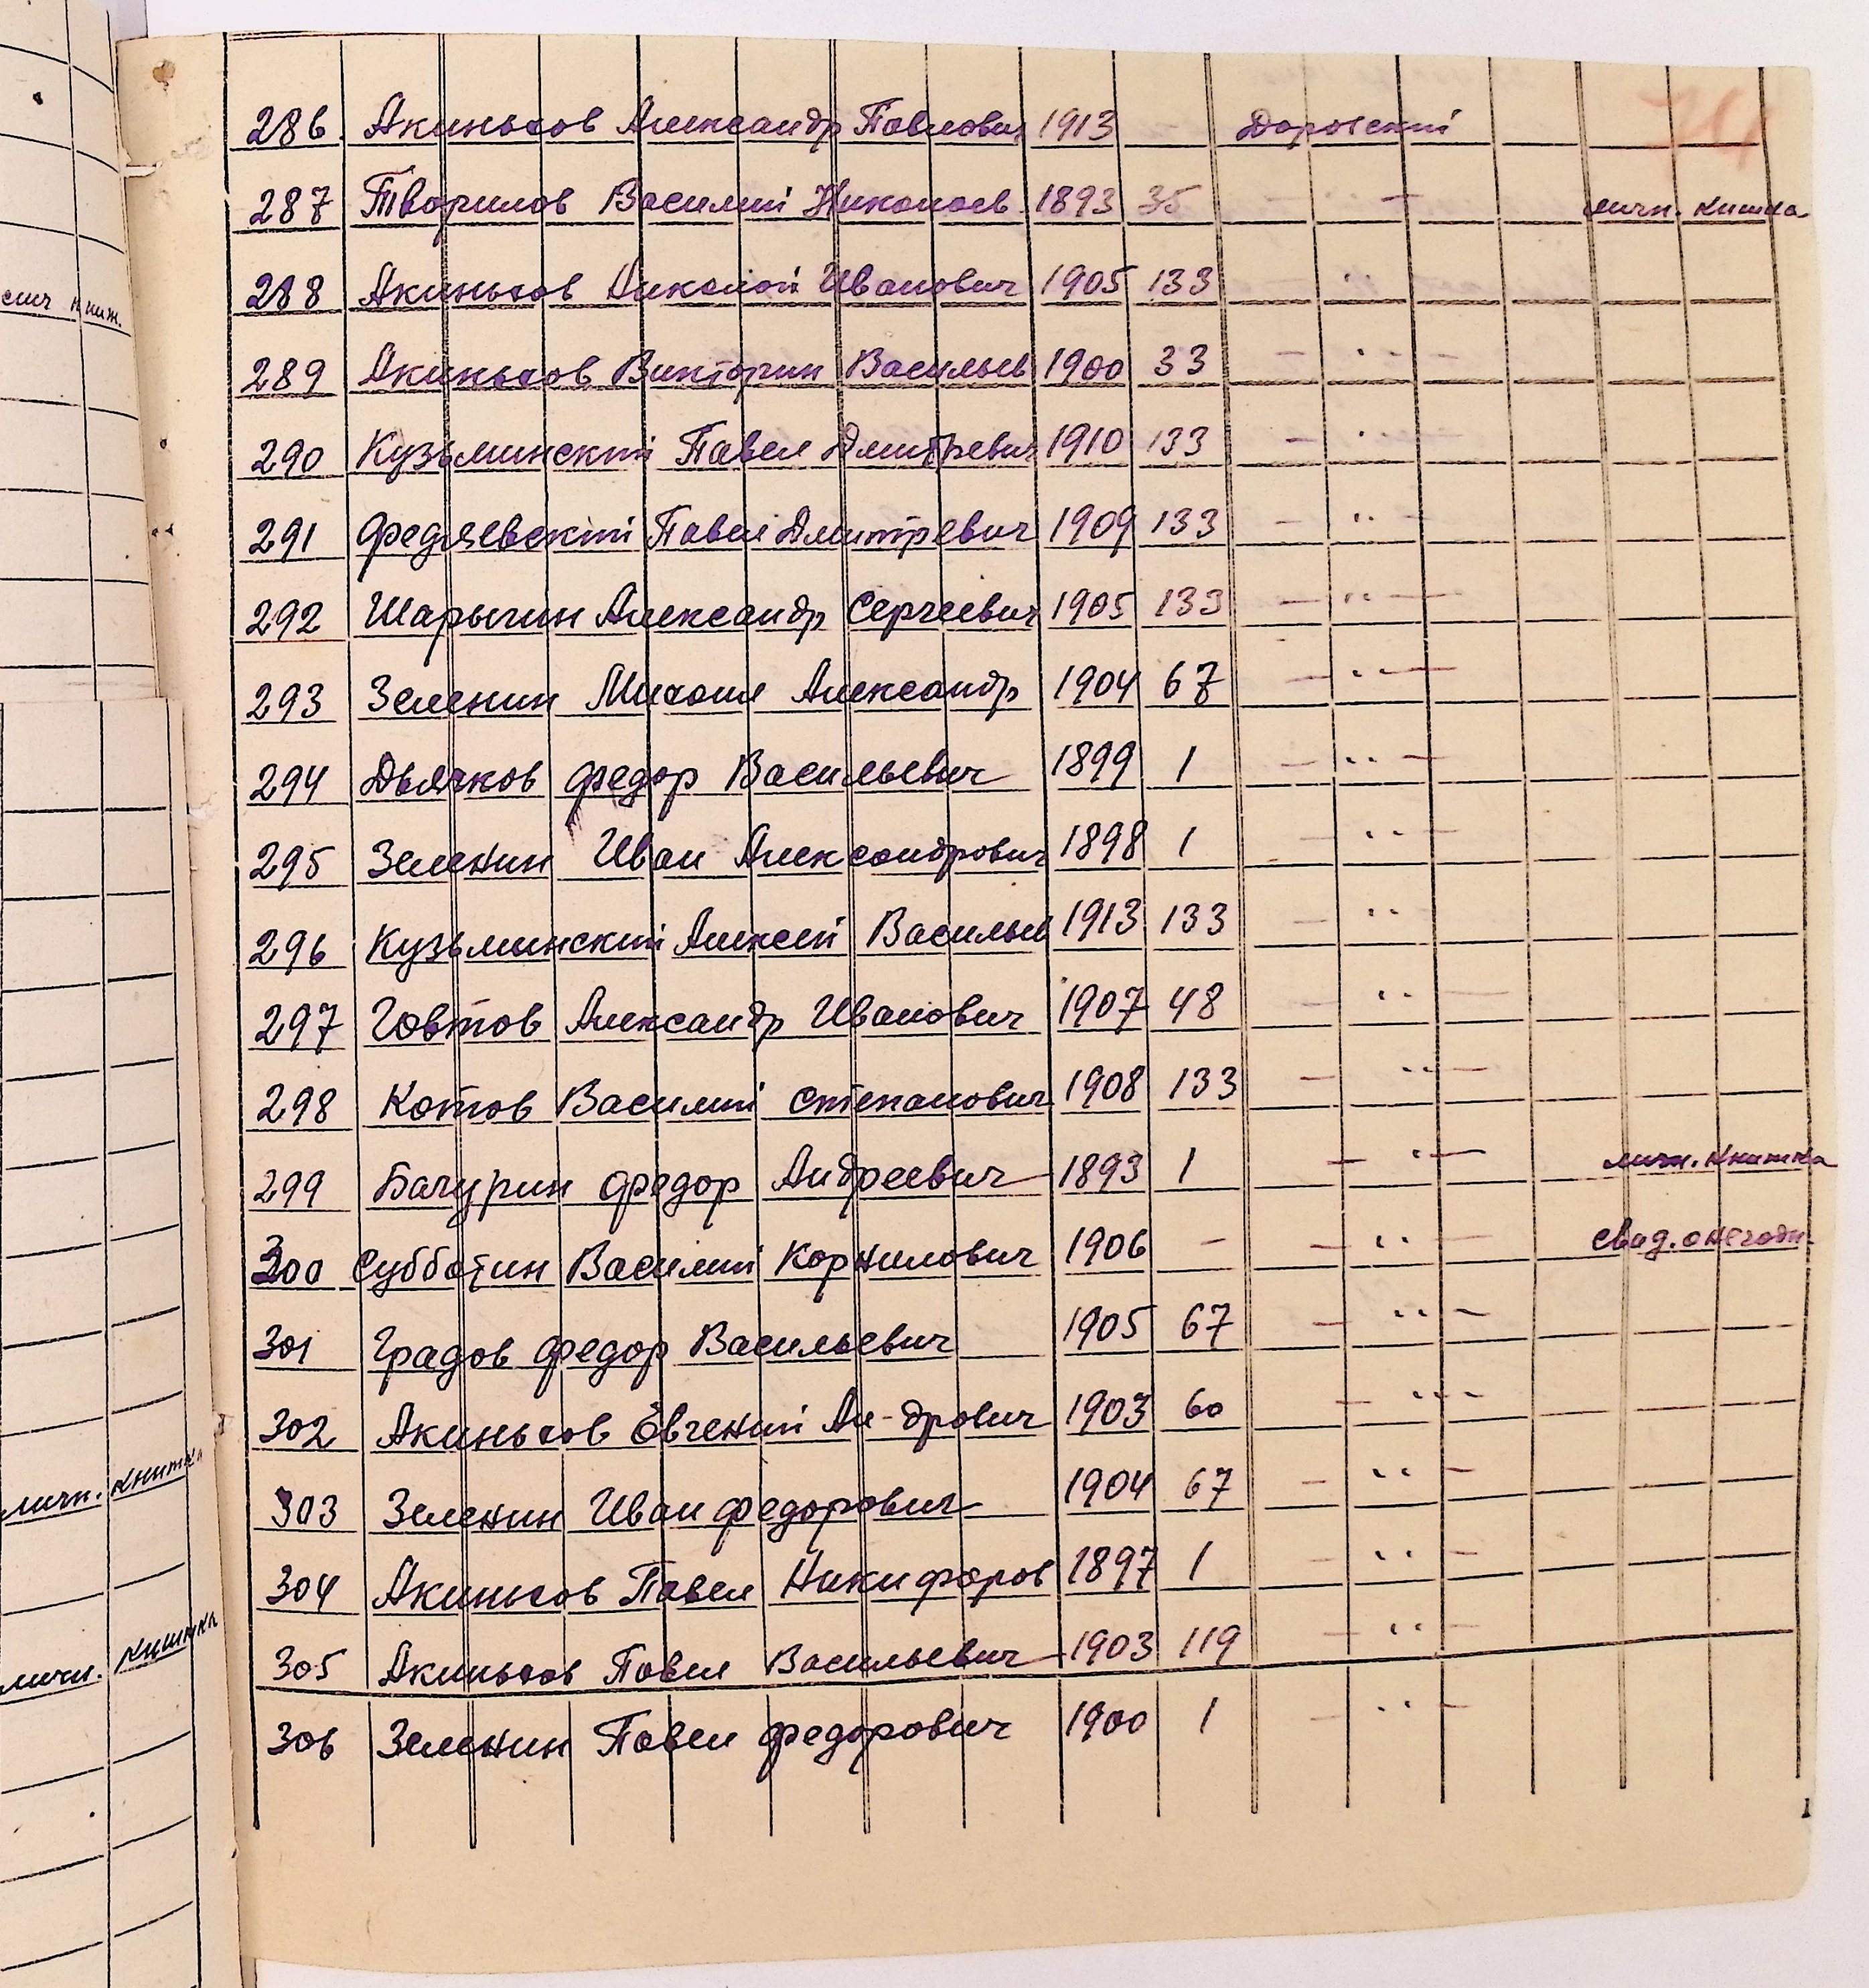 74
286. Акиньхов Александр Павлович 1913 - Доровский
287 Творилов Василий Николаев. 1893 35 - " - личн. книжка
288 Акиньхов Николай Иванович 1905 133 - " -
289 Акиньхов Викторин Васильев 1900 33 - " -
290 Кузьминский Павел Дмитревич 1910 133 - " -
291 Федяевский Павел Дмитревич 1909 133 - " -
292 Шарыгин Александр Сергеевич 1905 133 - " -
293 Зеленин Михаил Александр 1904 67 - " -
294 Дьячков Федор Васильевич 1899 1 - " -
295 Зеленин Иван Александрович 1898 1 - " -
296 Кузьминский Алексей Васильев 1913 133 - " -
297 Говтов Александр Иванович 1907 48 - " -
298 Котов Василий Степанович 1908 133 - " -
299 Бачурин Федор Андреевич 1893 1 - " - личн. книжка
300 Субботин Василий Корнилович 1906 - - " - свид. о негодн.
301 Градов Федор Васильевич 1905 67 - " -
302 Акиньхов Евгений Ал-дрович 1903 60 - " -
303 Зеленин Иван Федорович 1904 67 - " -
304 Акиньхов Павел Никифоров 1897 1 - " -
305 Акиньхов Павел Васильевич 1903 119 - " -
306 Зеленин Павел Федорович 1900 1 - " -
книж.
личн. книжка
личн. книжка